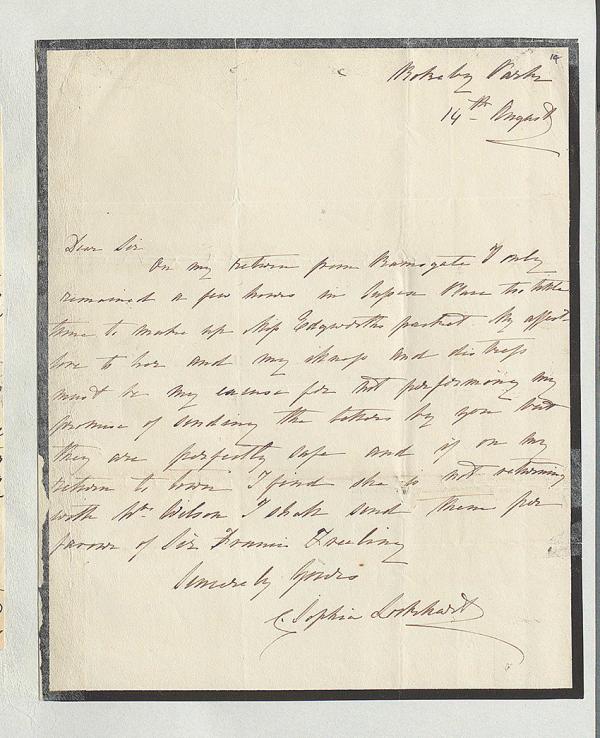 Rokeby Park
14th August
Dear Sir
On my return from Ramsgate I only
remained a few hours in Sussex Place too little
time to make up Miss Edgworths packet. My affect
love to her and my and distress
must be my excuse for not performing my
promise of sending the letters by you but
they are perfectly safe and if on my
return to town I find she is not returning
with Mr. Wilson I shall send them per
favour of Sir Francis Freeling
Sincerely Yours
C. Sophia Lockhart